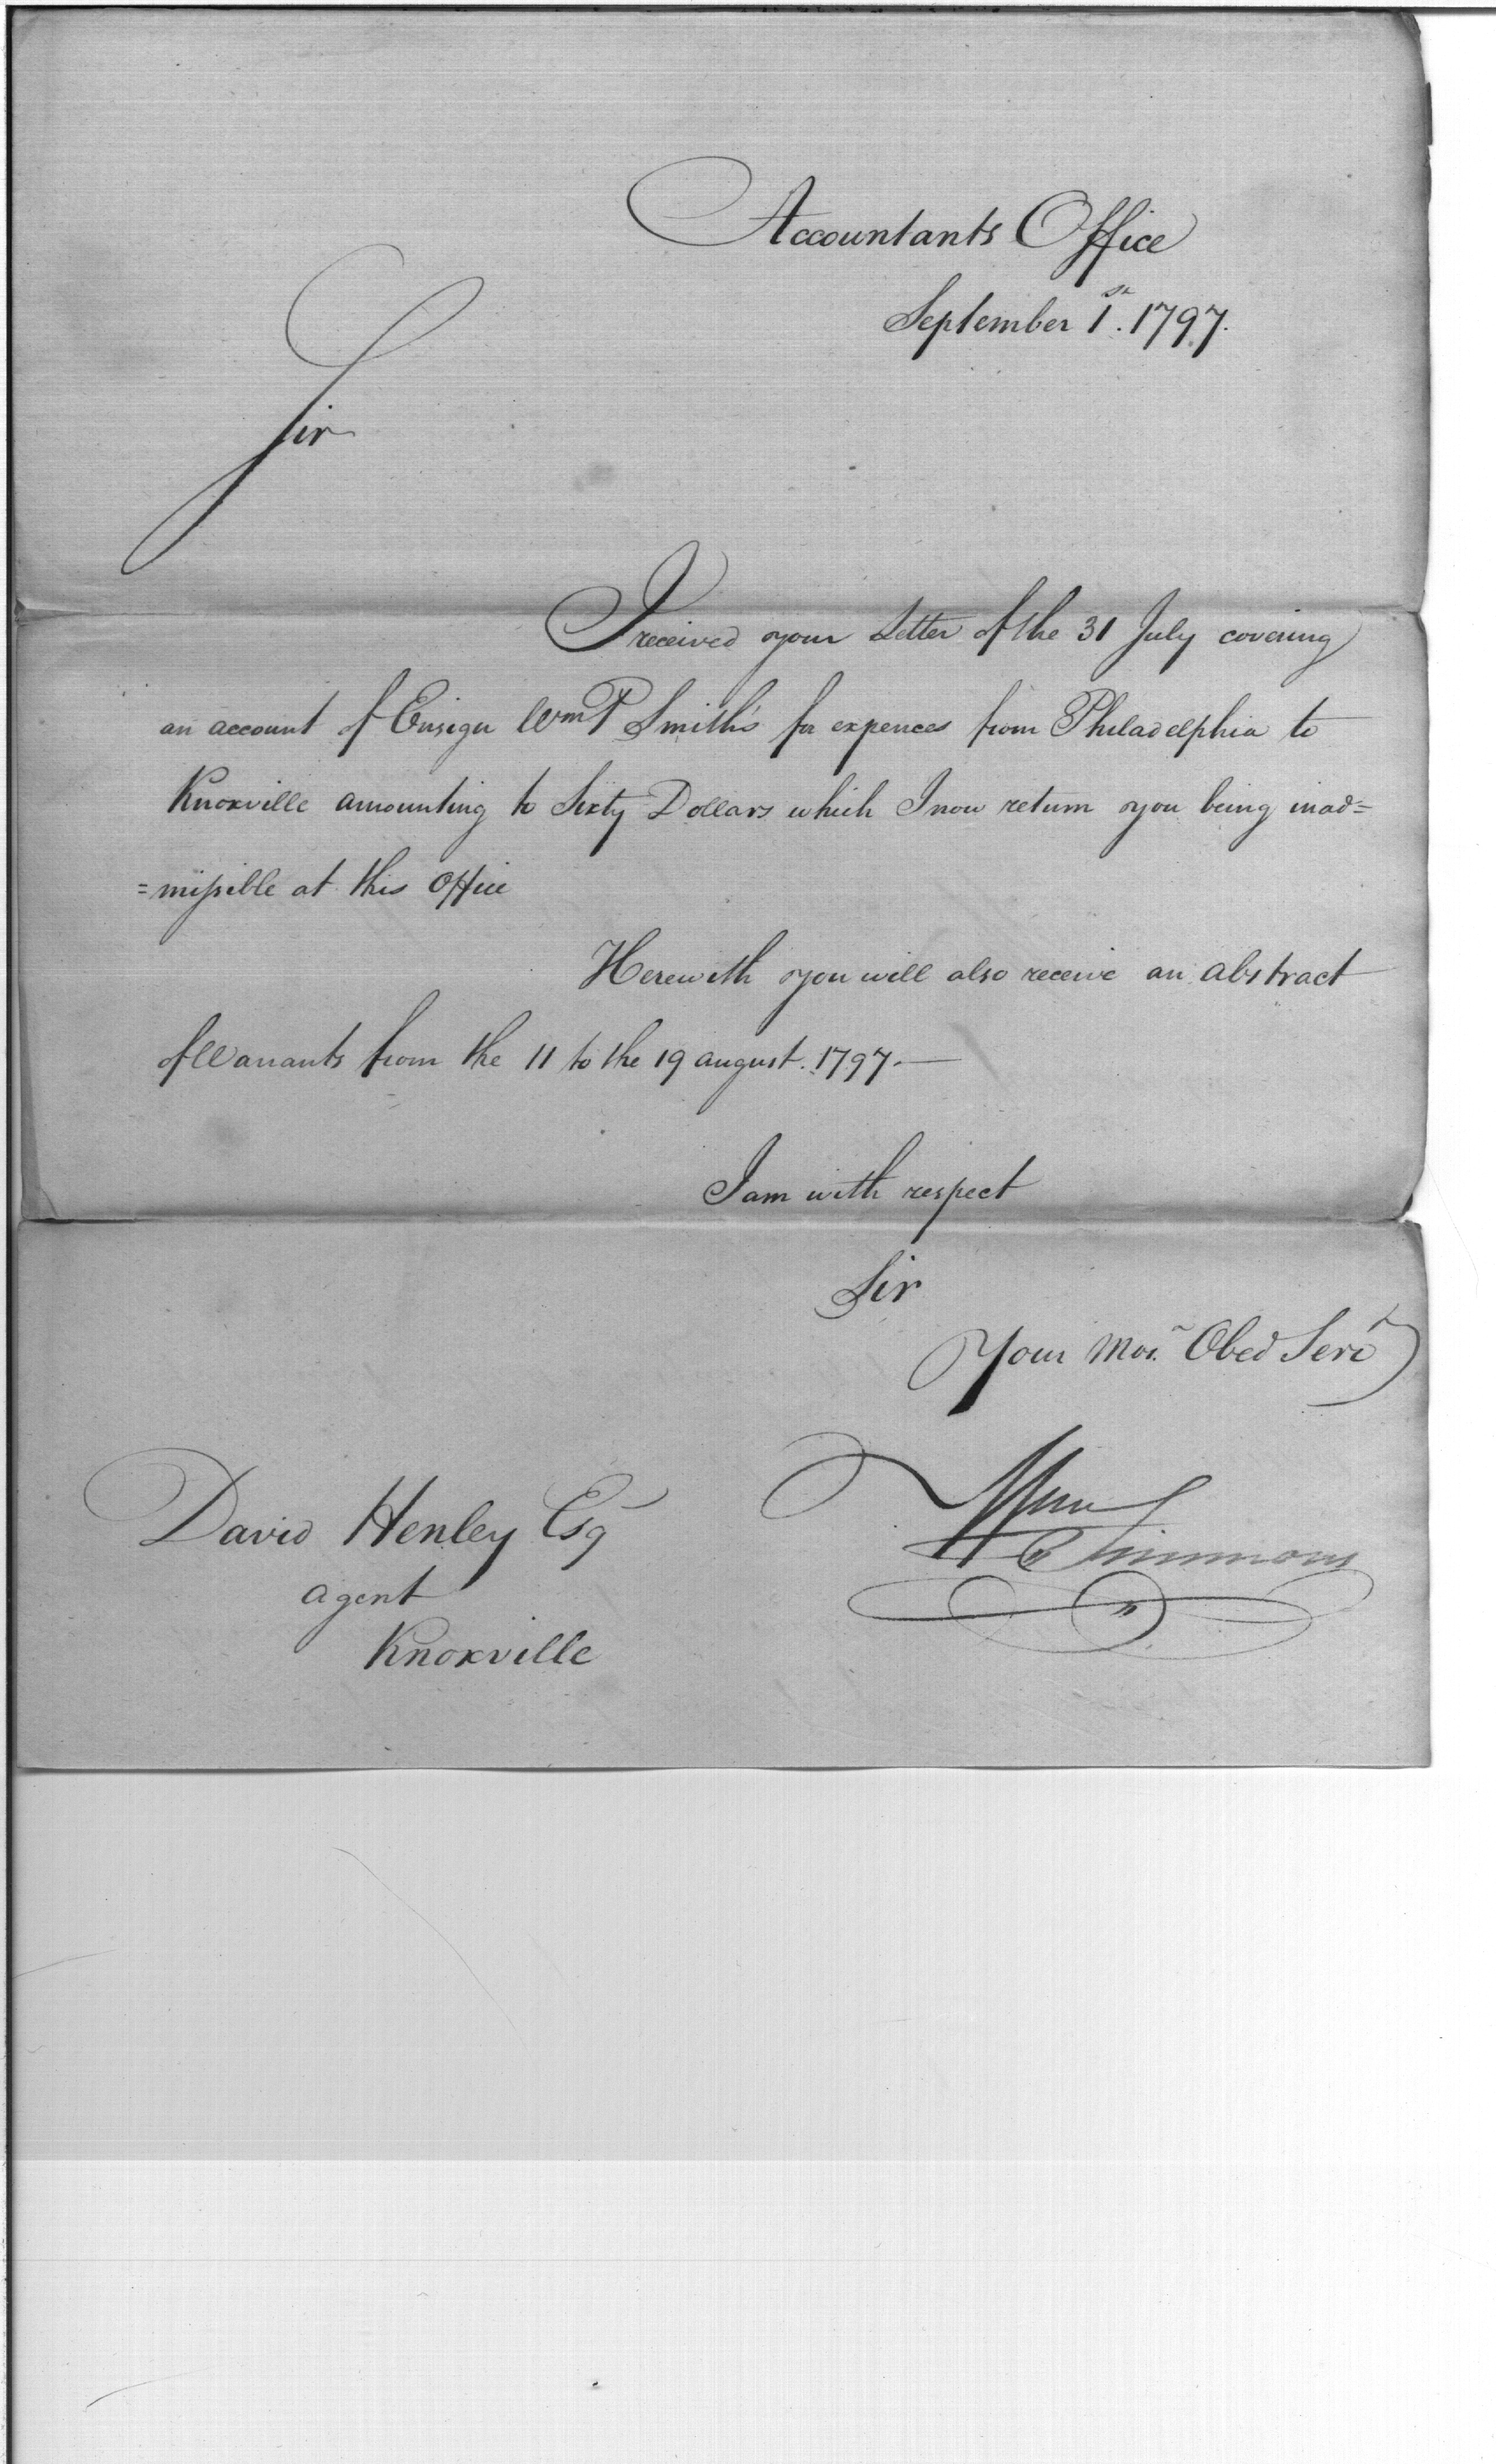 Accountants Office
September 1st. 1797.
Sir
I received your Letter of the 31 July covering
an account of Ensign Wm P Smith's for expences from Philadelphia to
Knoxville amounting to Sixty Dollars which I now return you being inad=
=missible at this Office
Herewith you will also receive an abstract
of Warrants from the 11 to the 19 august. 1797.—
I am with respect
Sir
Your Mos. Obed Servt
David Henley Esq
Wm
Simmons
agent
Knoxville